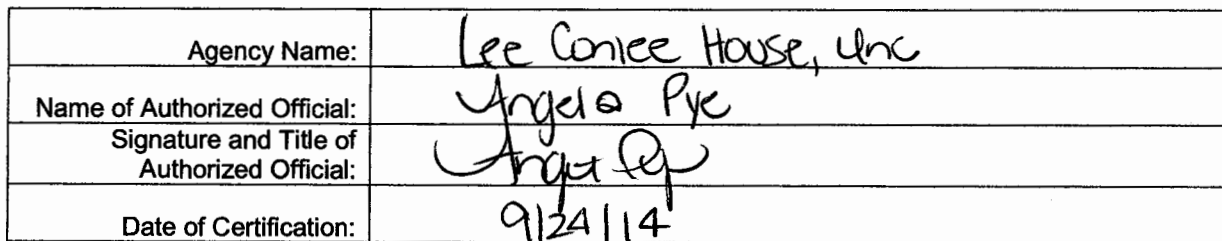 Agency Name: Lee Conlee House, Inc
Name of Authorized Official: Angela Pye
Signature and Title of
Authorized Official:
Date of Certification: 9/24/14